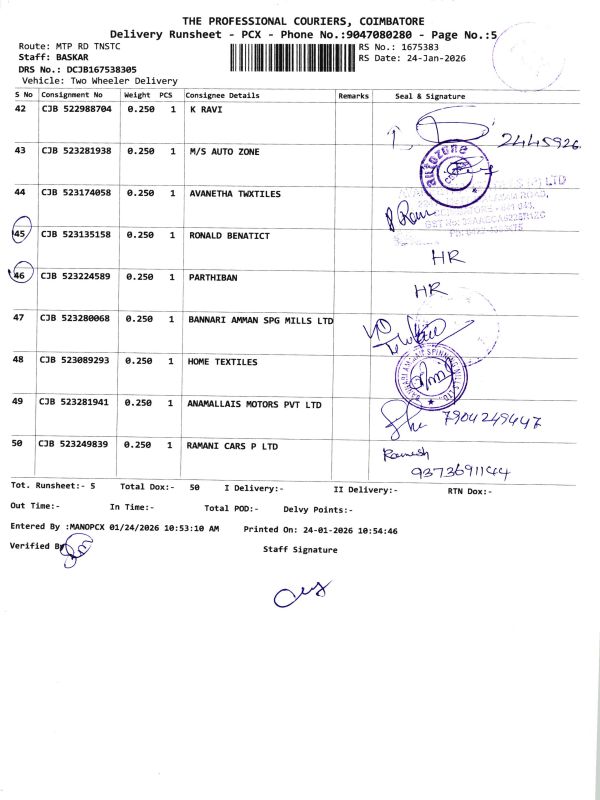 THE PROFESSIONAL COURIERS, COIMBATORE
Delivery Runsheet - PCX - Phone No.:9047080280 - Page No.:5
Route: MTP RD TNSTC
RS No.: 1675383
Staff: BASKAR
RS Date: 24-Jan-2026
DRS No.: DCJB167538305
Vehicle: Two Wheeler Delivery
S No Consignment No Weight PCS Consignee Details Remarks Seal & Signature
42 CJB 522988704 0.250 1 K RAVI
2445926
43 CJB 523281938 0.250 1 M/S AUTO ZONE
autozone
44 CJB 523174058 0.250 1 AVANETHA TWXTILES
45 CJB 523135158 0.250 1 RONALD BENATICT
HR
46 CJB 523224589 0.250 1 PARTHIBAN
HR
47 CJB 523280068 0.250 1 BANNARI AMMAN SPG MILLS LTD
48 CJB 523089293 0.250 1 HOME TEXTILES
49 CJB 523281941 0.250 1 ANAMALLAIS MOTORS PVT LTD
7904249447
50 CJB 523249839 0.250 1 RAMANI CARS P LTD
Ramesh
9373691144
Tot. Runsheet:- 5 Total Dox:- 50 I Delivery:- II Delivery:- RTN Dox:-
Out Time:- In Time:- Total POD:- Delvy Points:-
Entered By :MANOPCX 01/24/2026 10:53:10 AM Printed On: 24-01-2026 10:54:46
Verified By
Staff Signature